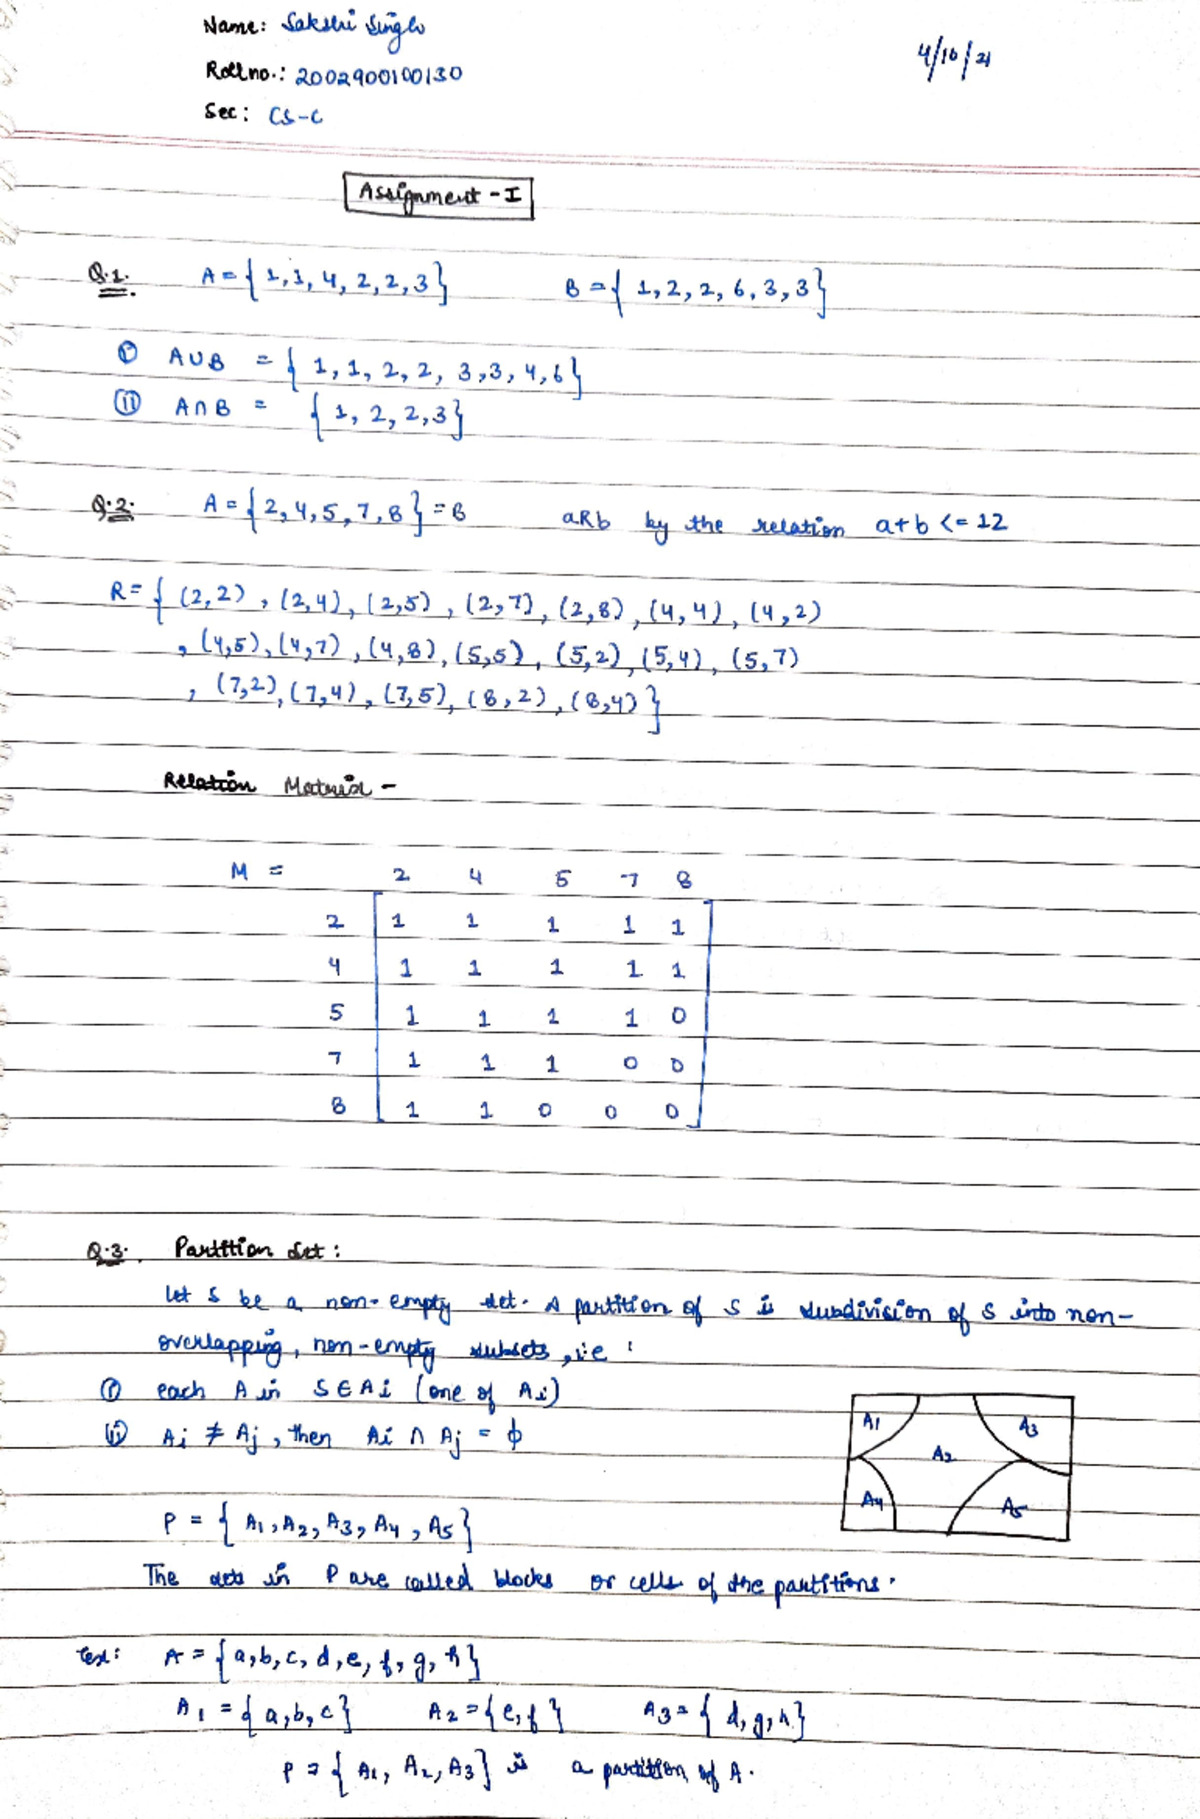 Name: Sakshi Singh
4/10/21
Roll no.: 2002900100130
Sec: CS-C
Assignment - I
Q.1. A = { 1, 1, 4, 2, 2, 3 } B = { 1, 2, 2, 6, 3, 3 }
(i) A∪B = { 1, 1, 2, 2, 3, 3, 4, 6 }
(ii) A∩B = { 1, 2, 2, 3 }
Q.2. A = { 2, 4, 5, 7, 8 } = B aRb by the relation a+b <= 12
R = { (2,2), (2,4), (2,5), (2,7), (2,8), (4,4), (4,2)
, (4,5), (4,7), (4,8), (5,5), (5,2), (5,4), (5,7)
, (7,2), (7,4), (7,5), (8,2), (8,4) }
Relation Matrix -
M = 2 4 5 7 8
2 1 1 1 1 1
4 1 1 1 1 1
5 1 1 1 1 0
7 1 1 1 0 0
8 1 1 0 0 0
Q.3. Partition Set :
Let S be a non-empty set. A partition of S is subdivision of S into non-
overlapping, non-empty subsets, i.e :
(i) each A in S ∈ Ai (one of Ai)
(ii) Ai ≠ Aj, then Ai ∩ Aj = ϕ
A1 A3
A2
A4 A5
P = { A1, A2, A3, A4, A5 }
The sets in P are called blocks or cells of the partitions.
Ex: A = { a, b, c, d, e, f, g, h }
A1 = { a, b, c } A2 = { e, f } A3 = { d, g, h }
P = { A1, A2, A3 } is a partition of A.